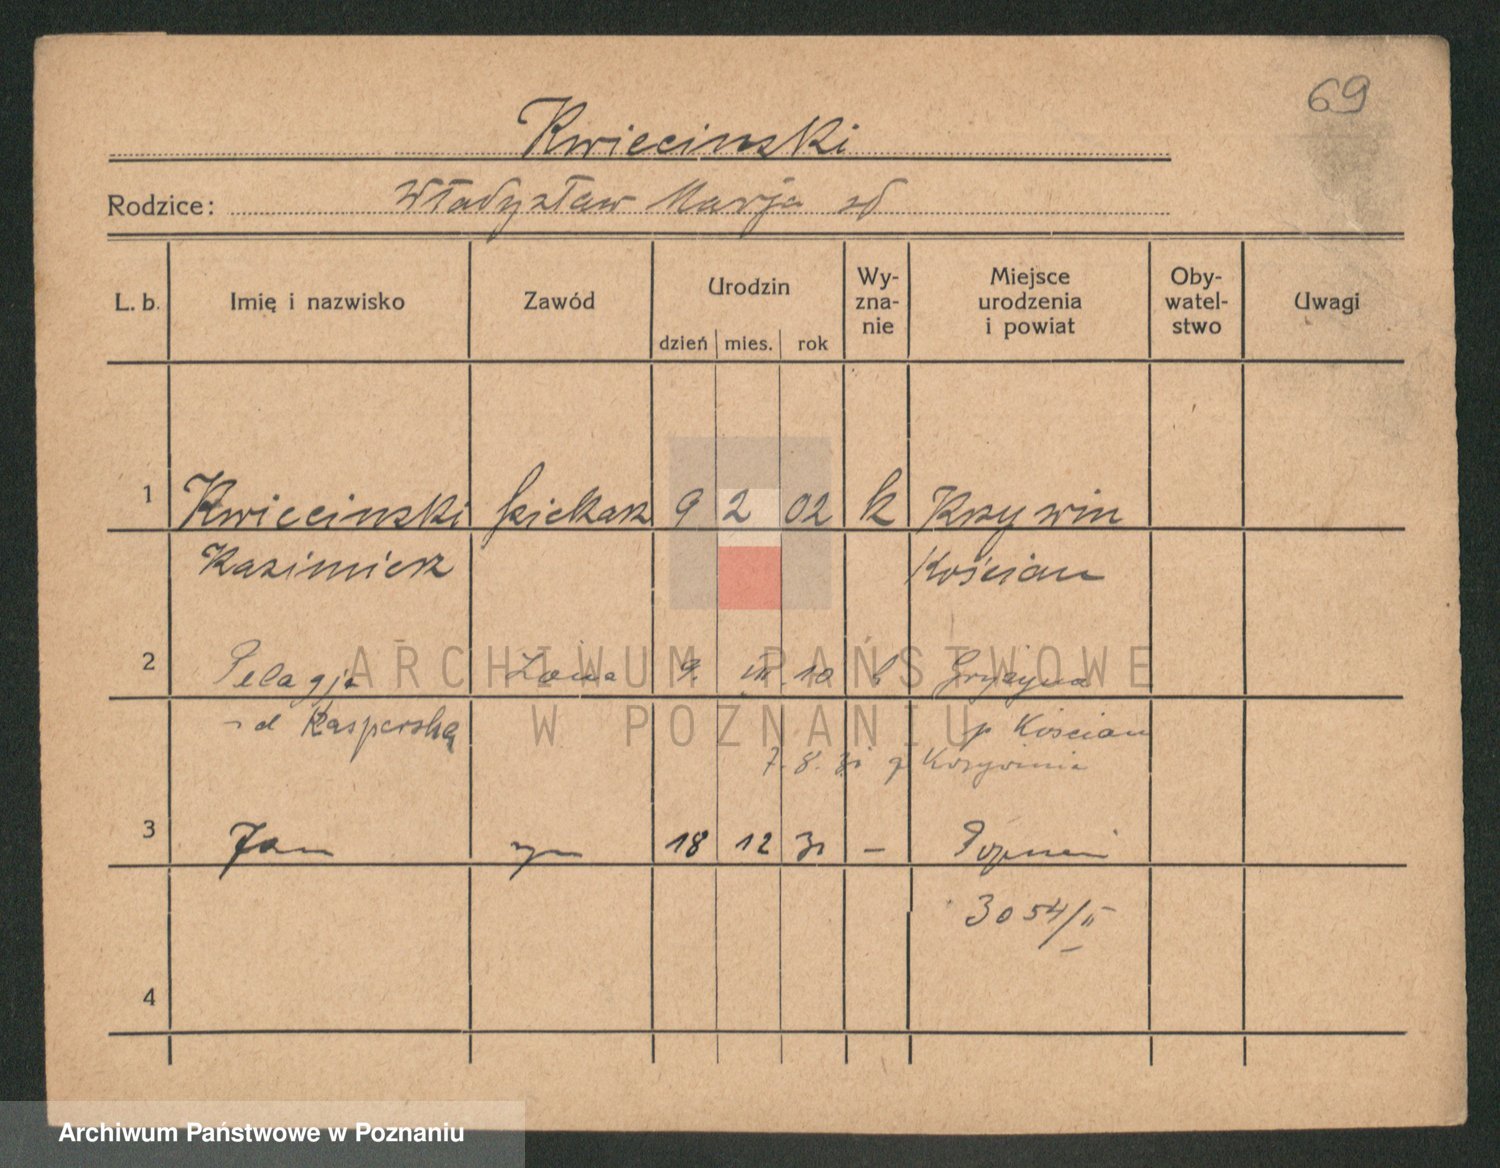 69
Kwiecinski
Rodzice: Władysław Marja zd
L. b. Imię i nazwisko Zawód Urodzin dzień mies. rok Wy-zna-nie Miejsce urodzenia i powiat Oby-watel-stwo Uwagi
1 Kwiecinski piekarz 9 2 02 k Krzywin
Kazimierz Kościan
2 Pelagja Żona 9. 10 k Gryżyna
zd Kasperską p Kościan
7. 8. 31 z Krzywinia
3 Jan syn 18 12 31 – Poznań
3054/II
4
ARCHIWUM PAŃSTWOWE
W POZNANIU
Archiwum Państwowe w Poznaniu